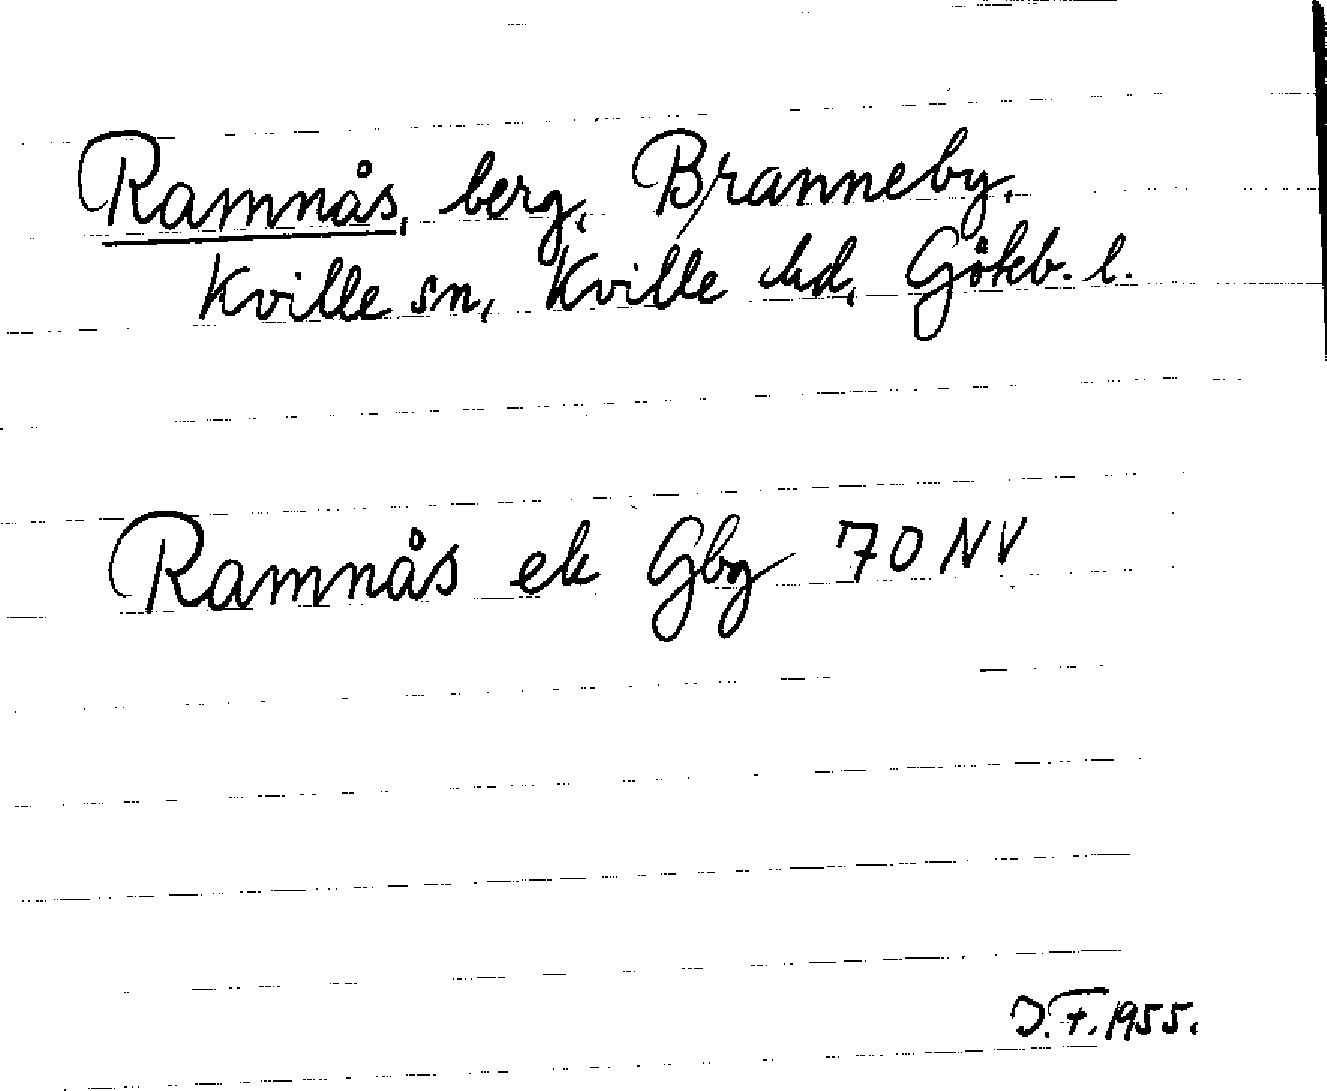 Ramnås, berg, Branneby,
Kville sn, Kville hd, Göteb. l.
Ramnås ek Gbg 70 NV
J.F. 1955.